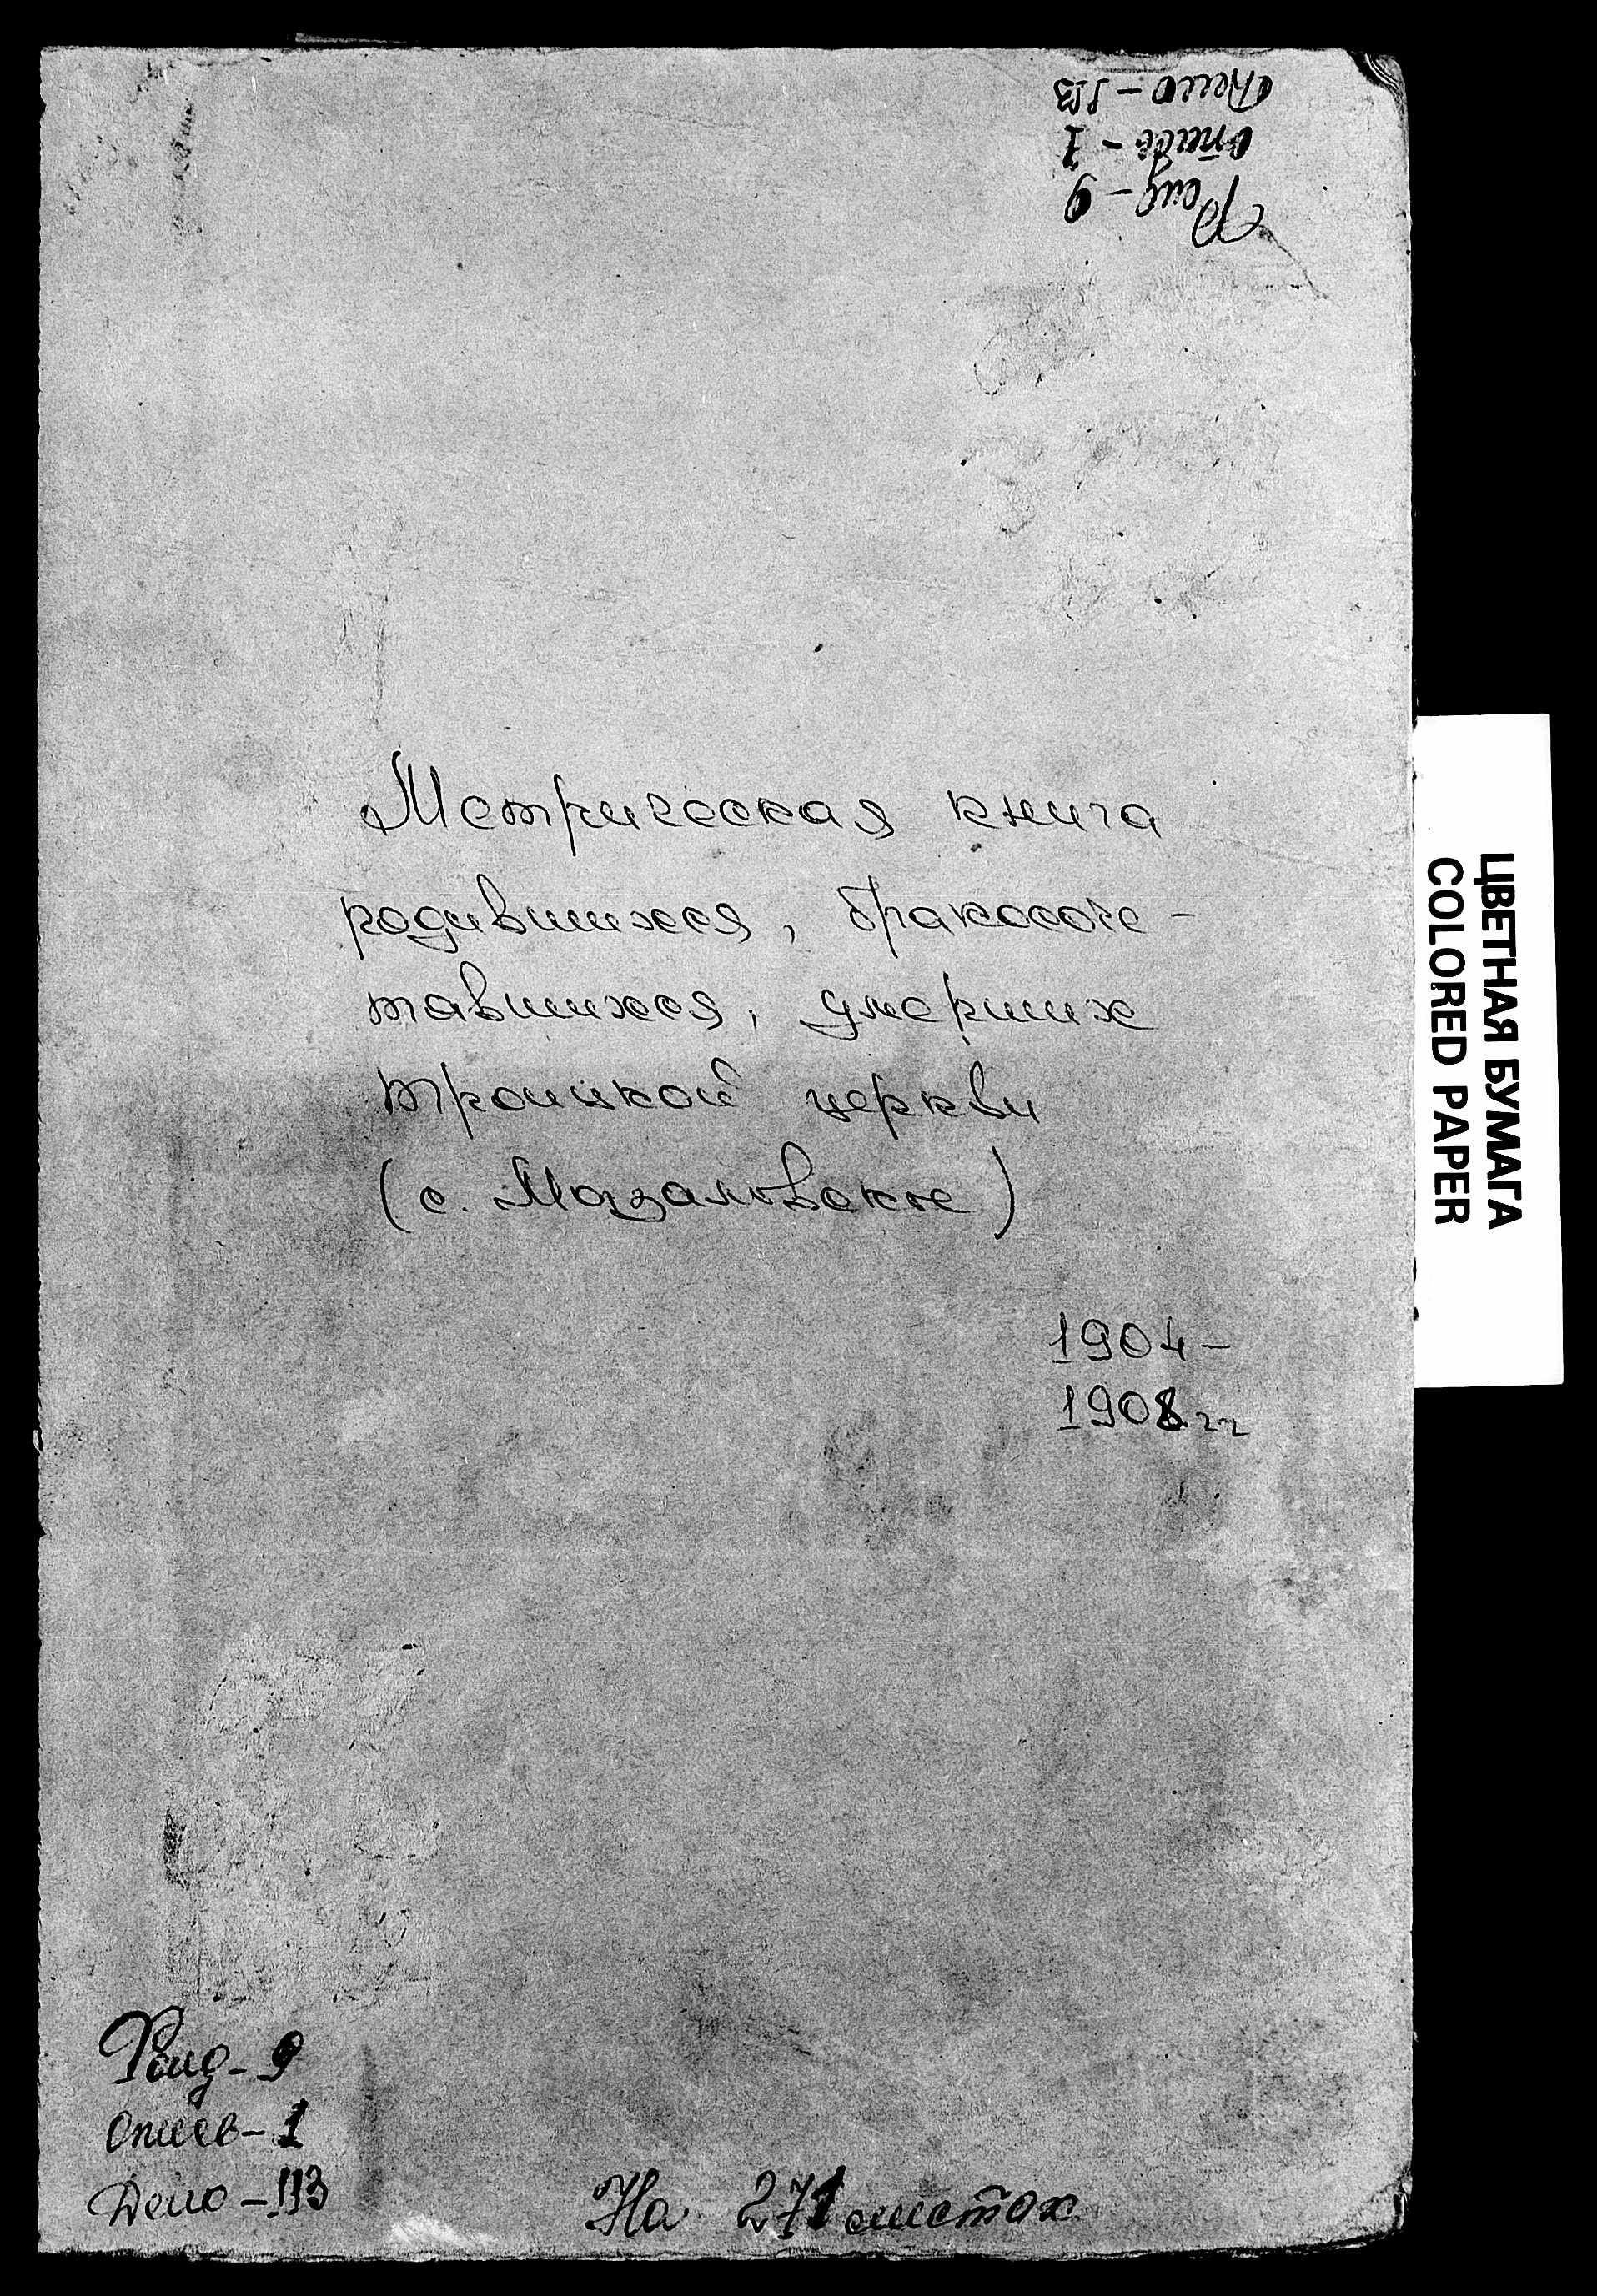 Фонд - 9
опись - 1
Дело - 113
Метрическая книга
родившихся, бракосоче-
тавшихся, умерших
Троицкой церкви
(с.
1904 -
1908 гг
ЦВЕТНАЯ БУМАГА
COLORED PAPER
Фонд - 9
опись - 1
Дело - 113
На 271 листах